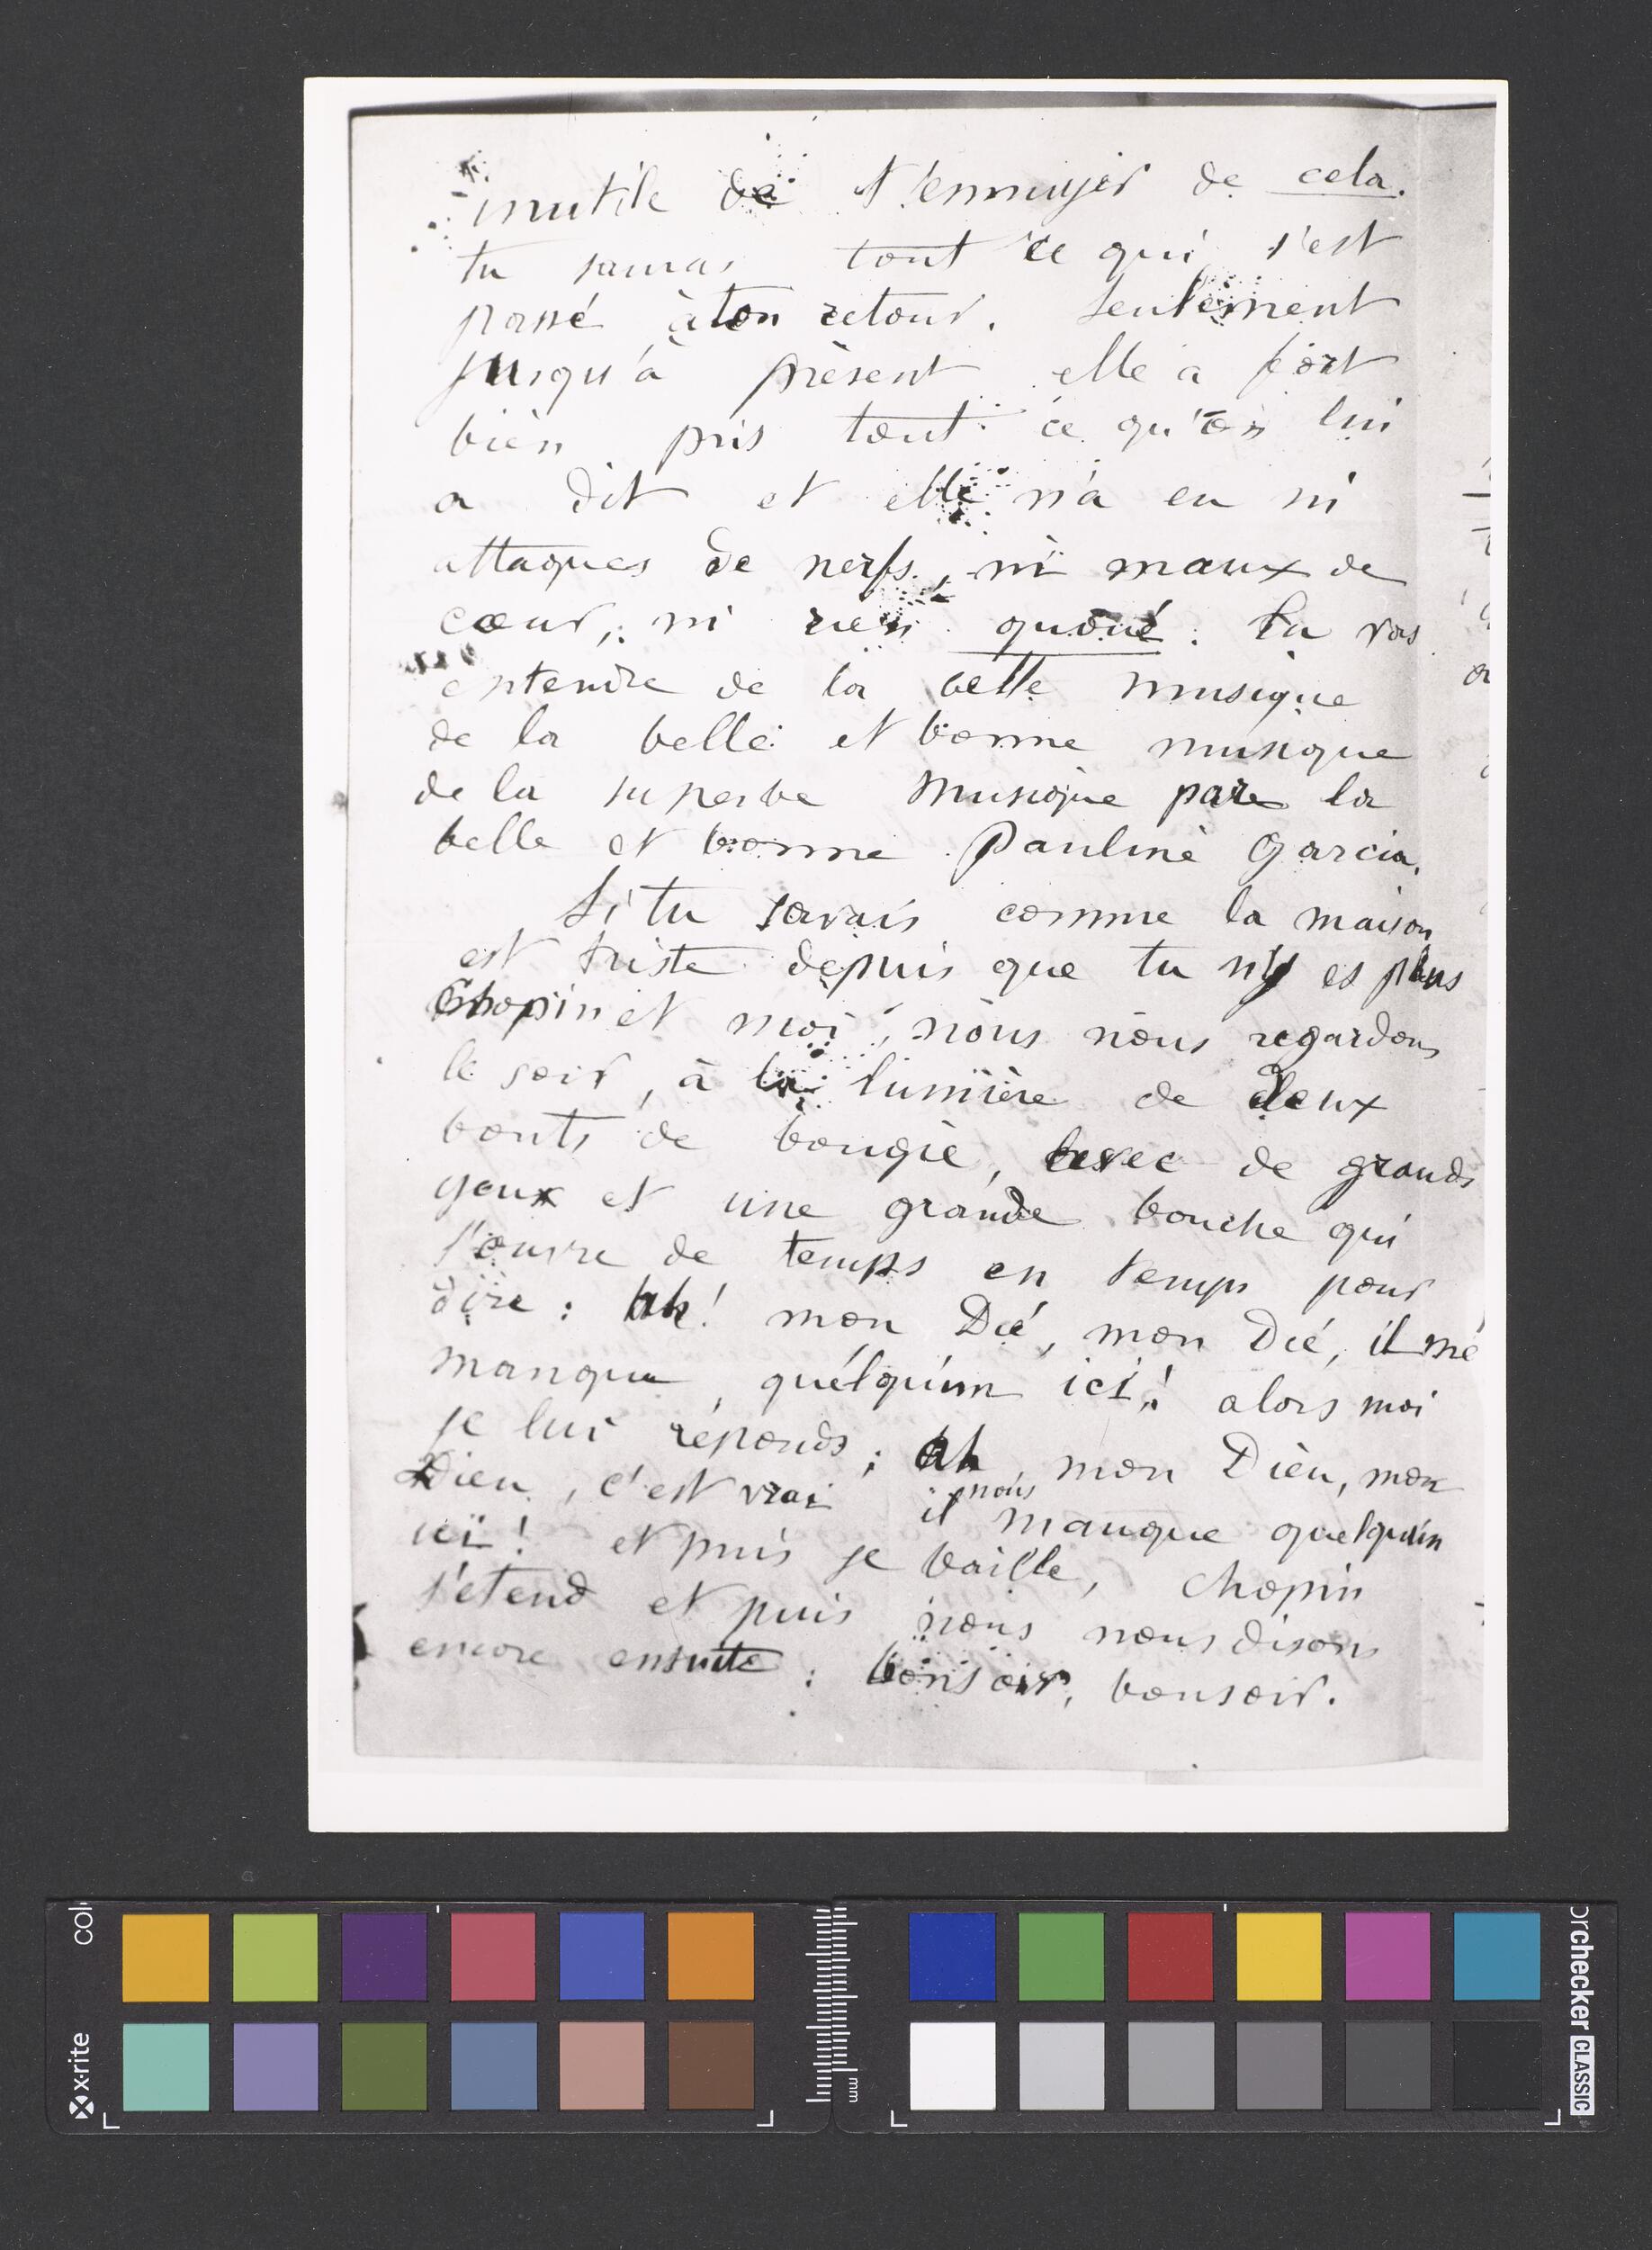 inutile de t'ennuyer de cela.
tu sauras tout ce qui s'est
passé à ton retour. Seulement
jusqu'à présent elle a fort
bien pris tout ce qu'on lui
a dit et elle n'a eu ni
attaques de nerfs, ni maux de
cœur, ni rien quoué. tu vas
entendre de la belle musique
de la belle et bonne musique
de la superbe musique par la
belle et bonne Pauline Garcia.
Si tu savais comme la maison
est triste depuis que tu n'y es plus
Chopin et moi, nous nous regardons
le soir, à la lumière de deux
bouts de bougie, avec de grands
yeux et une grande bouche qui
s'ouvre de temps en temps pour
dire : Ah! mon Dié, mon Dié, il mé
manque quélqu'un ici! alors moi
je lui réponds; Ah, mon Dieu, mon
Dieu, c'est vrai il nous manque quelqu'un
ici! et puis je baille, Chopin
s'etend et puis nous nous disons
encore ensuite : bonsoir, bonsoir.
x-rite
col
mm
orchecker CLASSIC